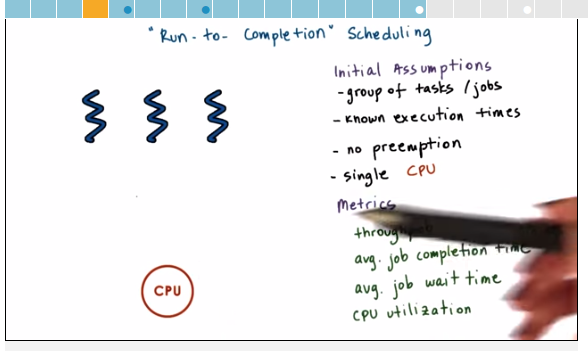 "Run-to-Completion" Scheduling
Initial Assumptions
- group of tasks / jobs
- known execution times
- no preemption
- single CPU
Metrics
avg. job completion time
avg. job wait time
CPU utilization
CPU